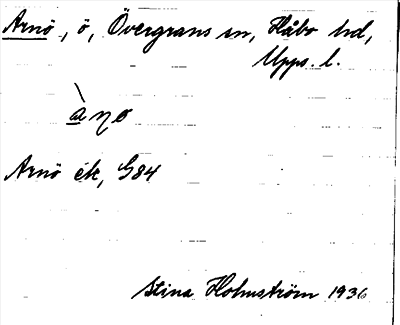 Arnö, ö, Övergrans sn, Håbo hd,
Upps. l.
Arnö ék, G84
Stina Holmström 1936